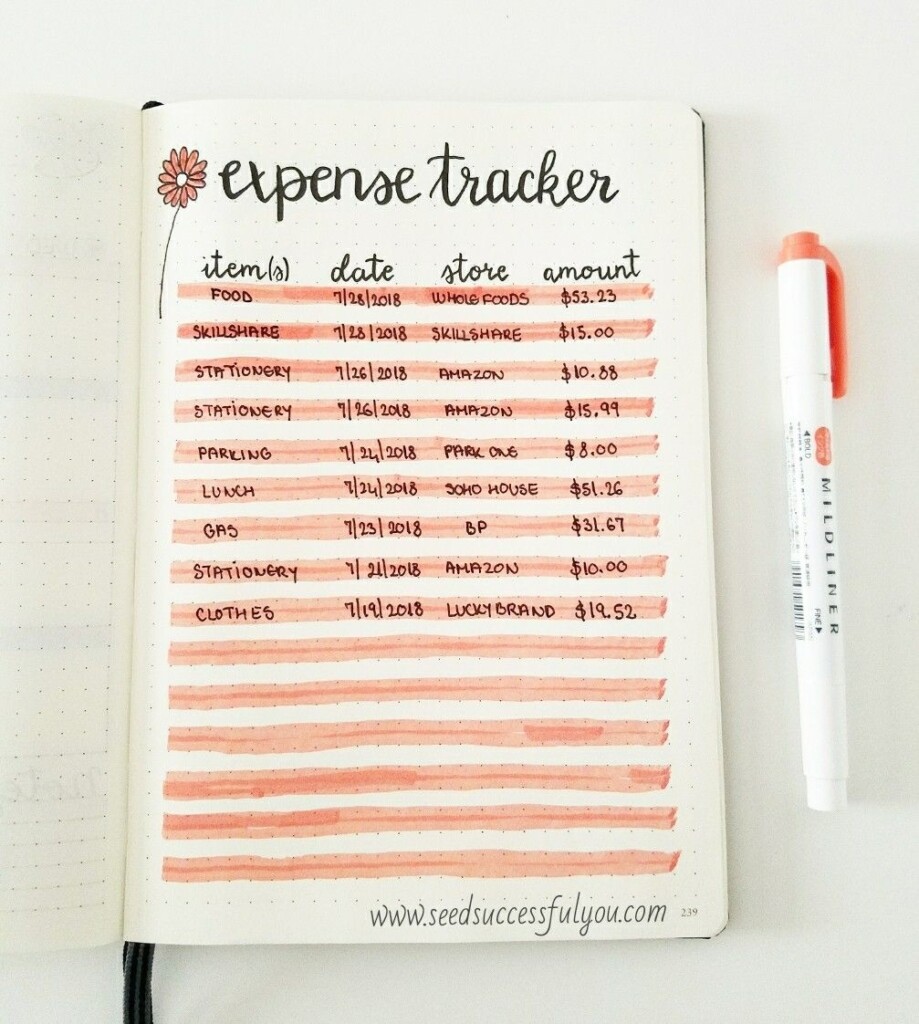 expense tracker
item(s) date store amount
FOOD 7/28/2018 WHOLE FOODS $53.23
SKILLSHARE 7/28/2018 SKILLSHARE $15.00
STATIONERY 7/26/2018 AMAZON $10.88
STATIONERY 7/26/2018 AMAZON $15.99
PARKING 7/24/2018 PARK ONE $8.00
LUNCH 7/24/2018 SOHO HOUSE $51.26
GAS 7/23/2018 BP $31.67
STATIONERY 7/21/2018 AMAZON $10.00
CLOTHES 7/19/2018 LUCKY BRAND $19.52
www.seedsuccessfulyou.com
239
◀BOLD
MILDLINER
FINE▶